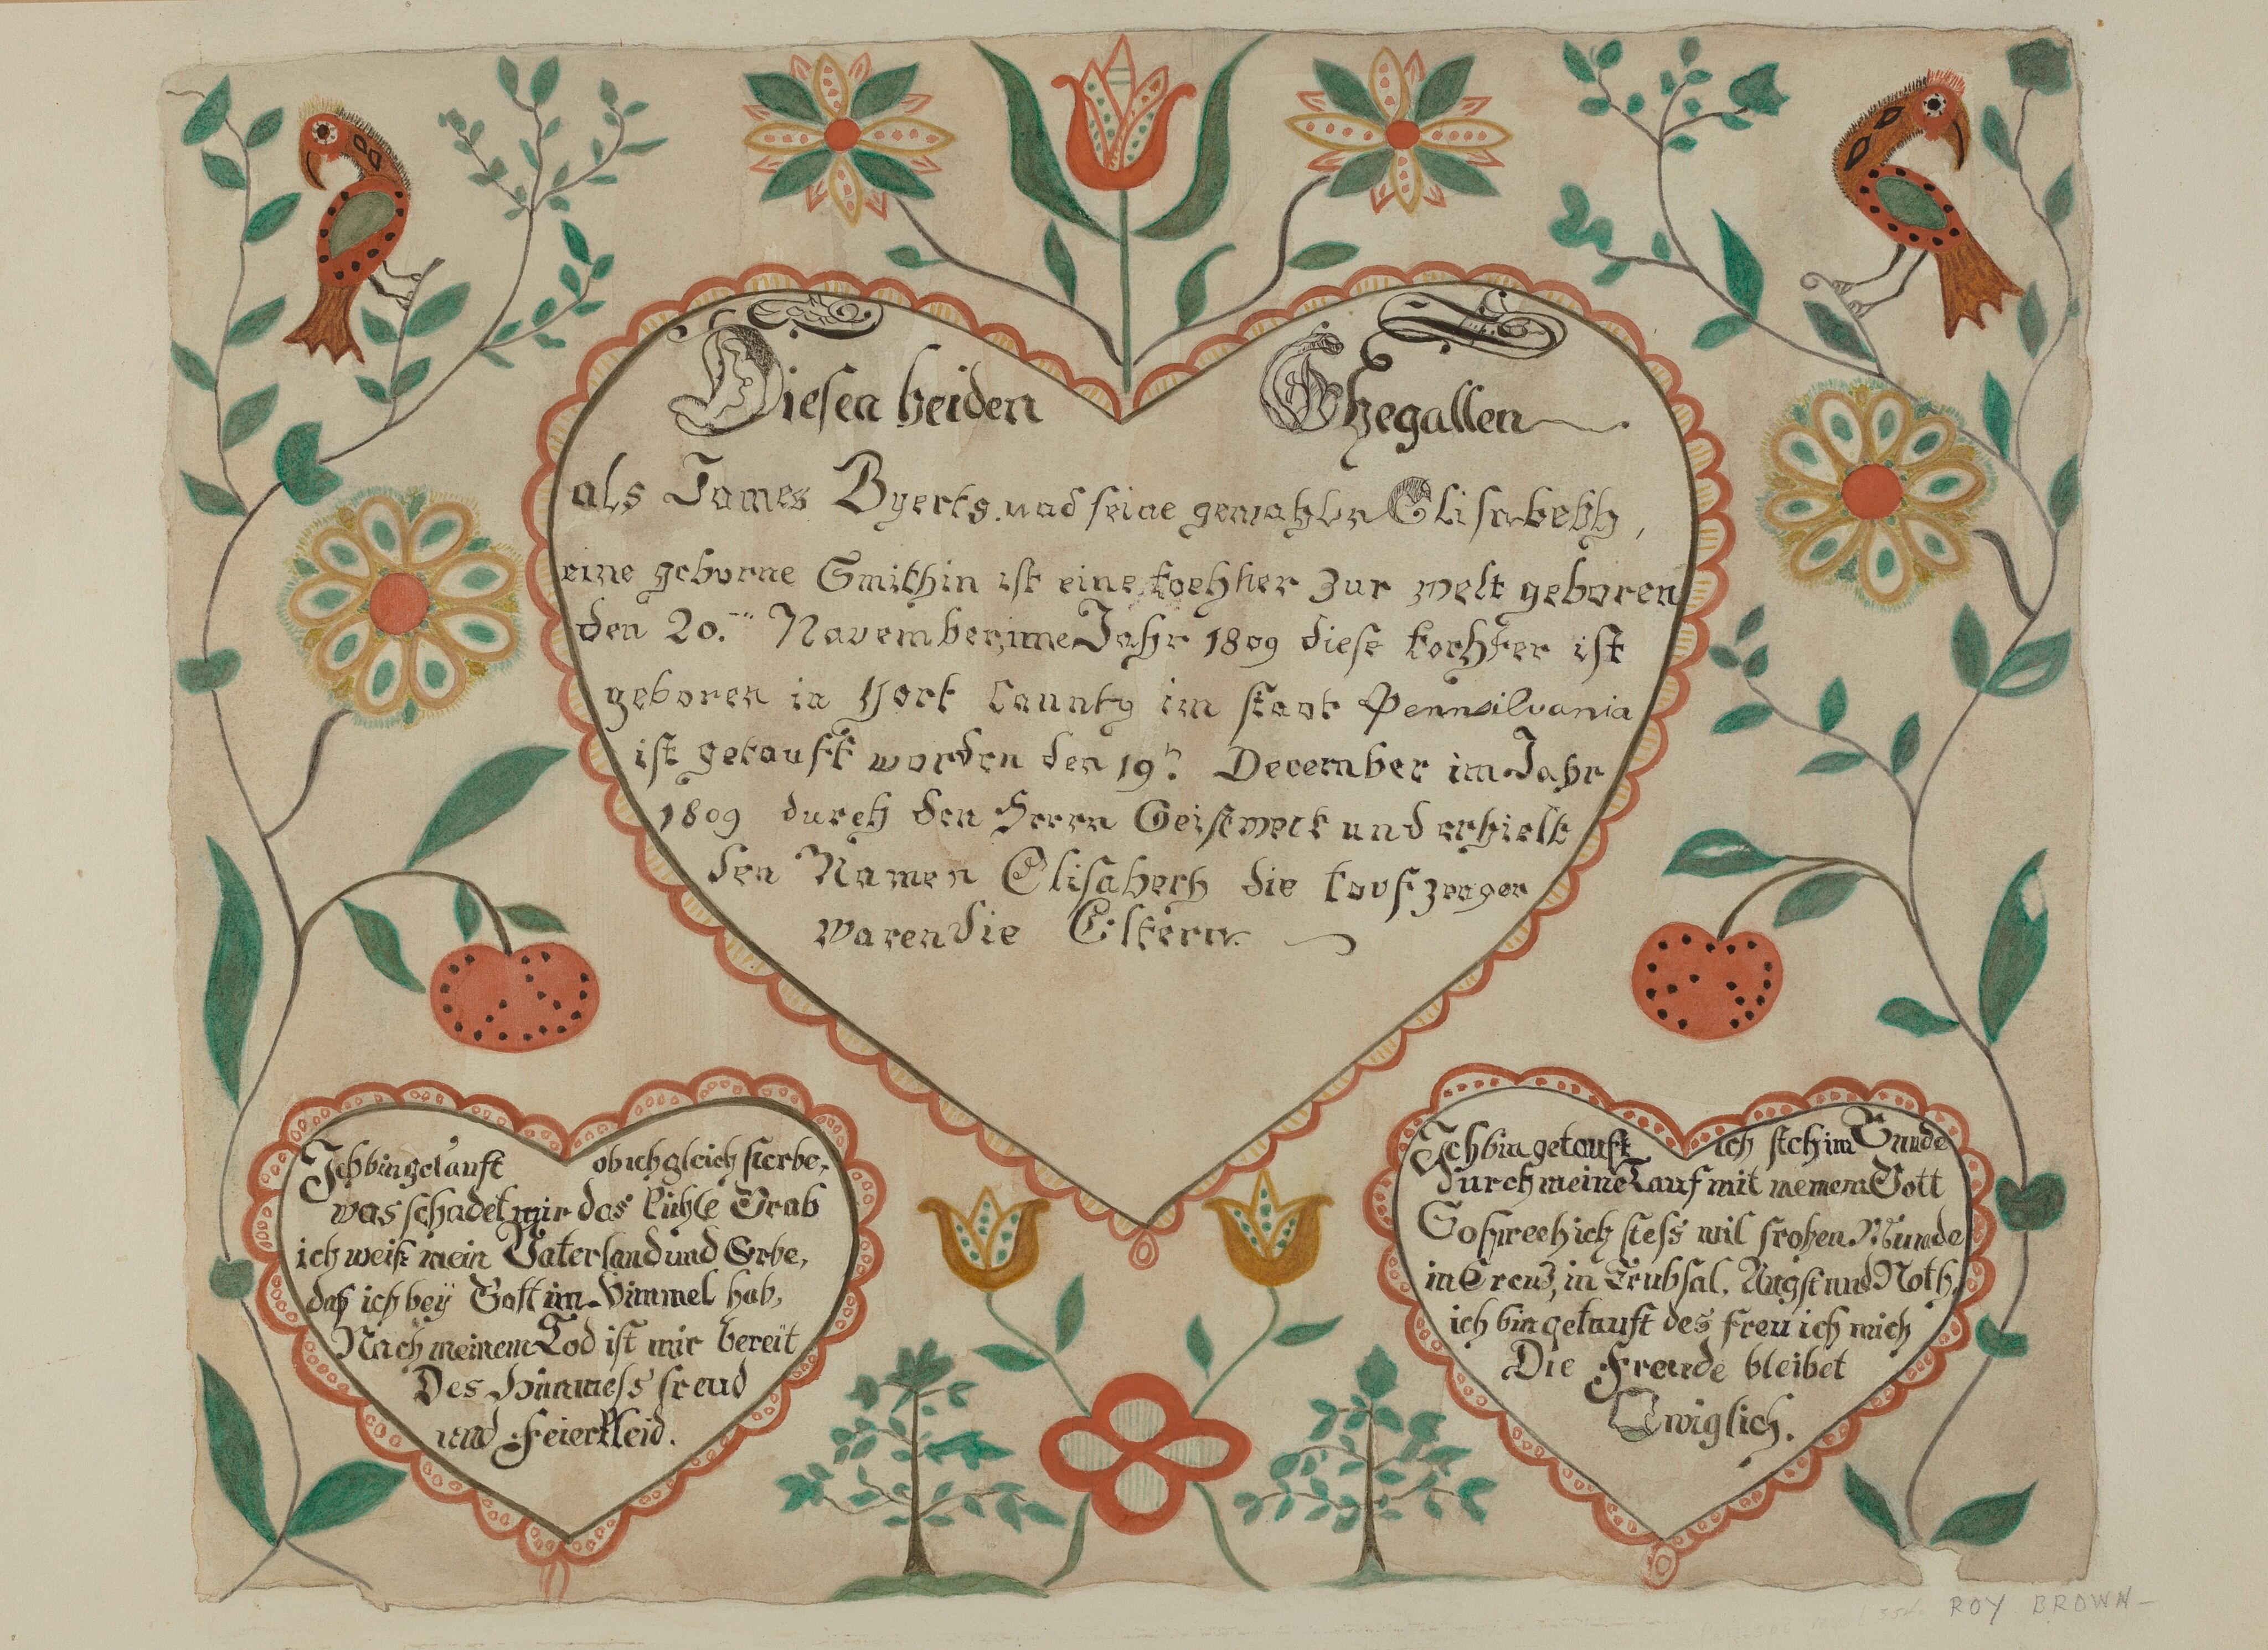 Diesen beiden Ehegallen
als James Byerts und seine gemahlin Elisabebh,
eine geborne Smithin ist eine toehher zur welt geboren
den 20. November, ime Jahr 1809 diese tochter ist
geboren in York County im staat Pennsilvania
ist getauft worden den 19. December im Jahr
1809 durch den Herrn Geistweit und erhielt
den Namen Elisabeth die taufzeugen
waren die Eltern.
Ich bin getauft ob ich gleich sterbe,
was schadet mir das kühle Grab
ich weiß mein Vaterland und Erbe,
daß ich bey Gott im Himmel hab,
Nach meinem Tod ist mir bereit
Des Himmels freud
und Feierkleid.
Ich bin getauft ich steh im Bunde
durch meine Tauf mit meinem Gott
So sprech ich stets mit frohen Munde
in Creuz, in Trubsal, Angst und Noth,
ich bin getauft des freu ich mich
Die Freude bleibet
Ewiglich.
ROY BROWN